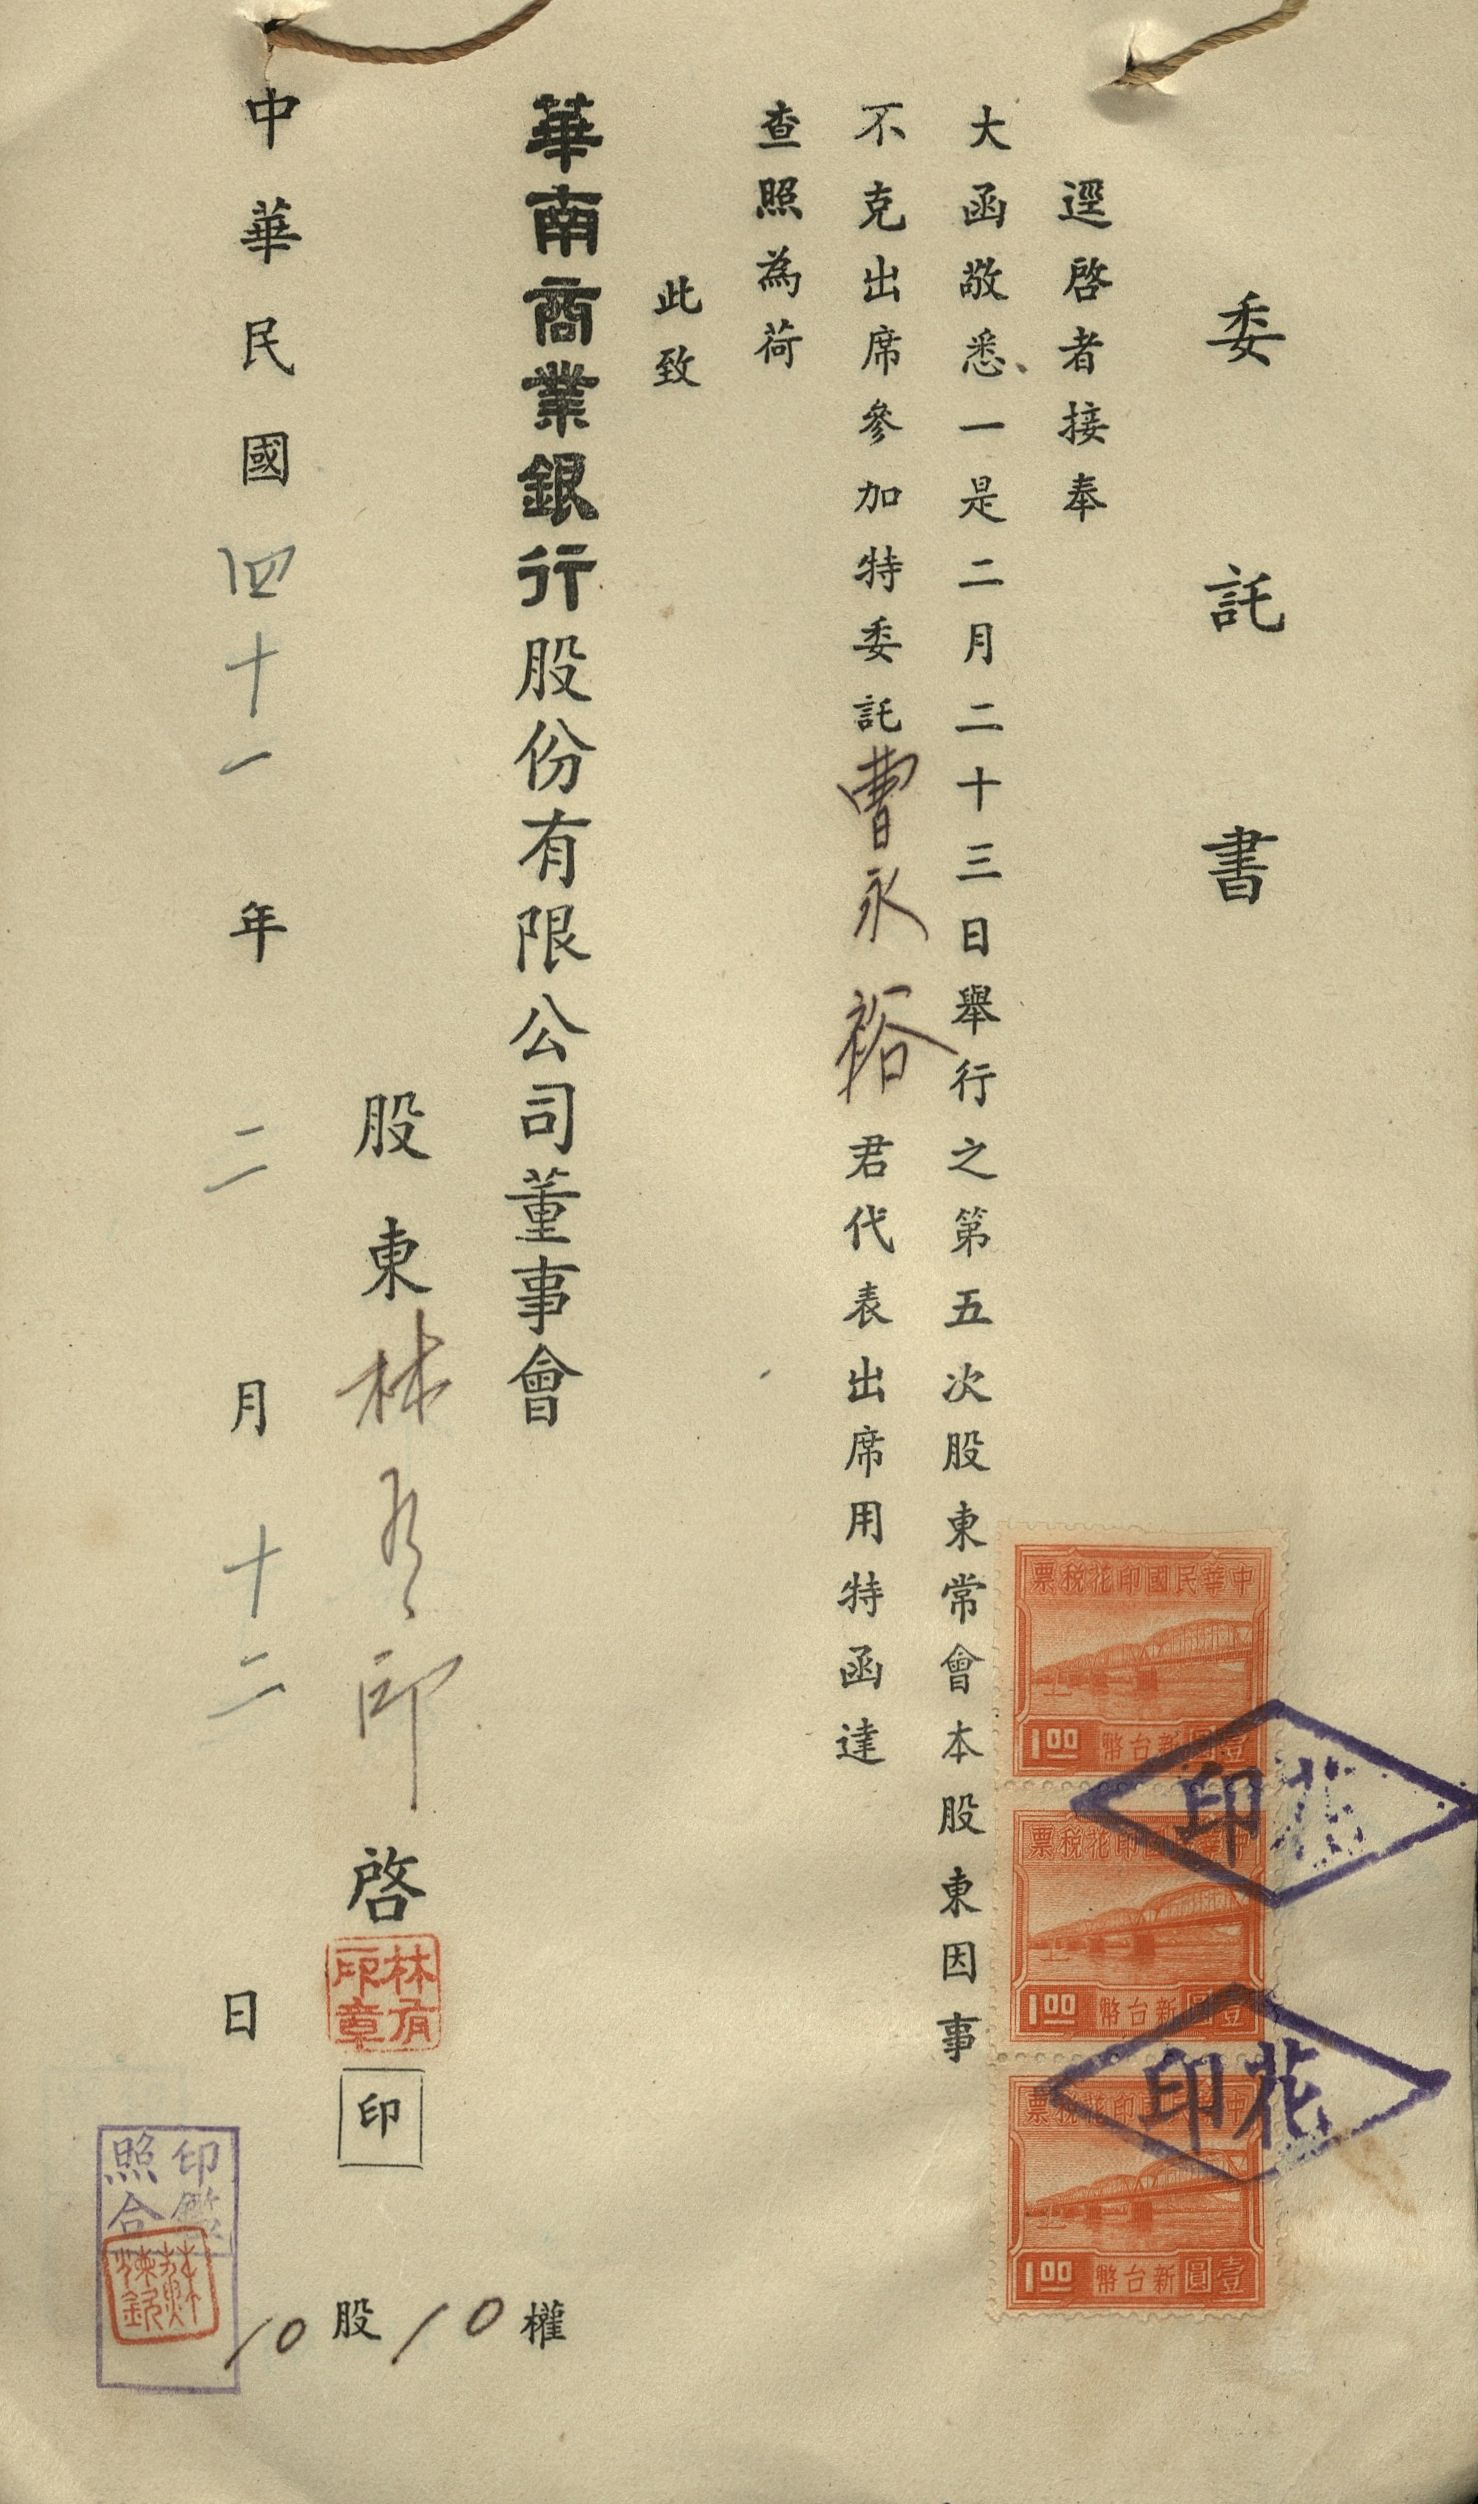 委託書
逕啓者接奉
大函敬悉、一是二月二十三日舉行之第五次股東常會本股東因事
不克出席參加特委託曹永裕君代表出席用特函達
查照為荷
此致
華南商業銀行股份有限公司董事會
股東林有印啓
林有印章
印
10股10權
中華民國四十一年二月十二日
印鑑
照合
中華民國印花稅票
壹圓新台幣
1.00
中華民國印花稅票
壹圓新台幣
1.00
中華民國印花稅票
壹圓新台幣
1.00
花印
花印